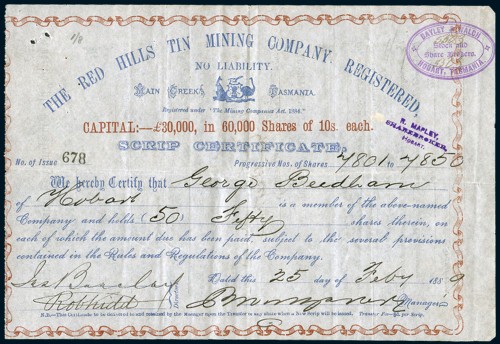 1/8
THE RED HILLS TIN MINING COMPANY, REGISTERED
NO LIABILITY.
MAIN CREEK TASMANIA.
Registered under "The Mining Companies Act, 1884."
CAPITAL:—£30,000, in 60,000 Shares of 10s. each.
SCRIP CERTIFICATE,
BAYLEY & WALCH
Stock and
Share Brokers.
HOBART, TASMANIA
R. MAPLEY,
SHAREBROKER,
HOBART.
No. of Issue 678 Progressive Nos. of Shares 7801 to 7850
We hereby Certify that George Beedham
of Hobart is a member of the above-named
Company and holds (50) Fifty shares therein, on
each of which the amount due has been paid, subject to the several provisions
contained in the Rules and Regulations of the Company.
Dated this 25 day of Feby 1889
Jas Barclay
Manager
N.B.—This Certificate to be delivered to and retained by the Manager upon the Transfer in any share when a New Scrip will be issued. Transfer Fee per Scrip.